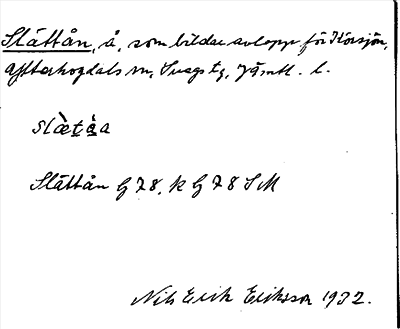 Slåttån, å, som bildar avlopp för Horsjön,
Ytterhogdals sn, Svegs tg, Jämtl. l.
slæ̀tå̀a
Slåttån G 78, k G 78 SM
Nils Erik Eriksson 1932.